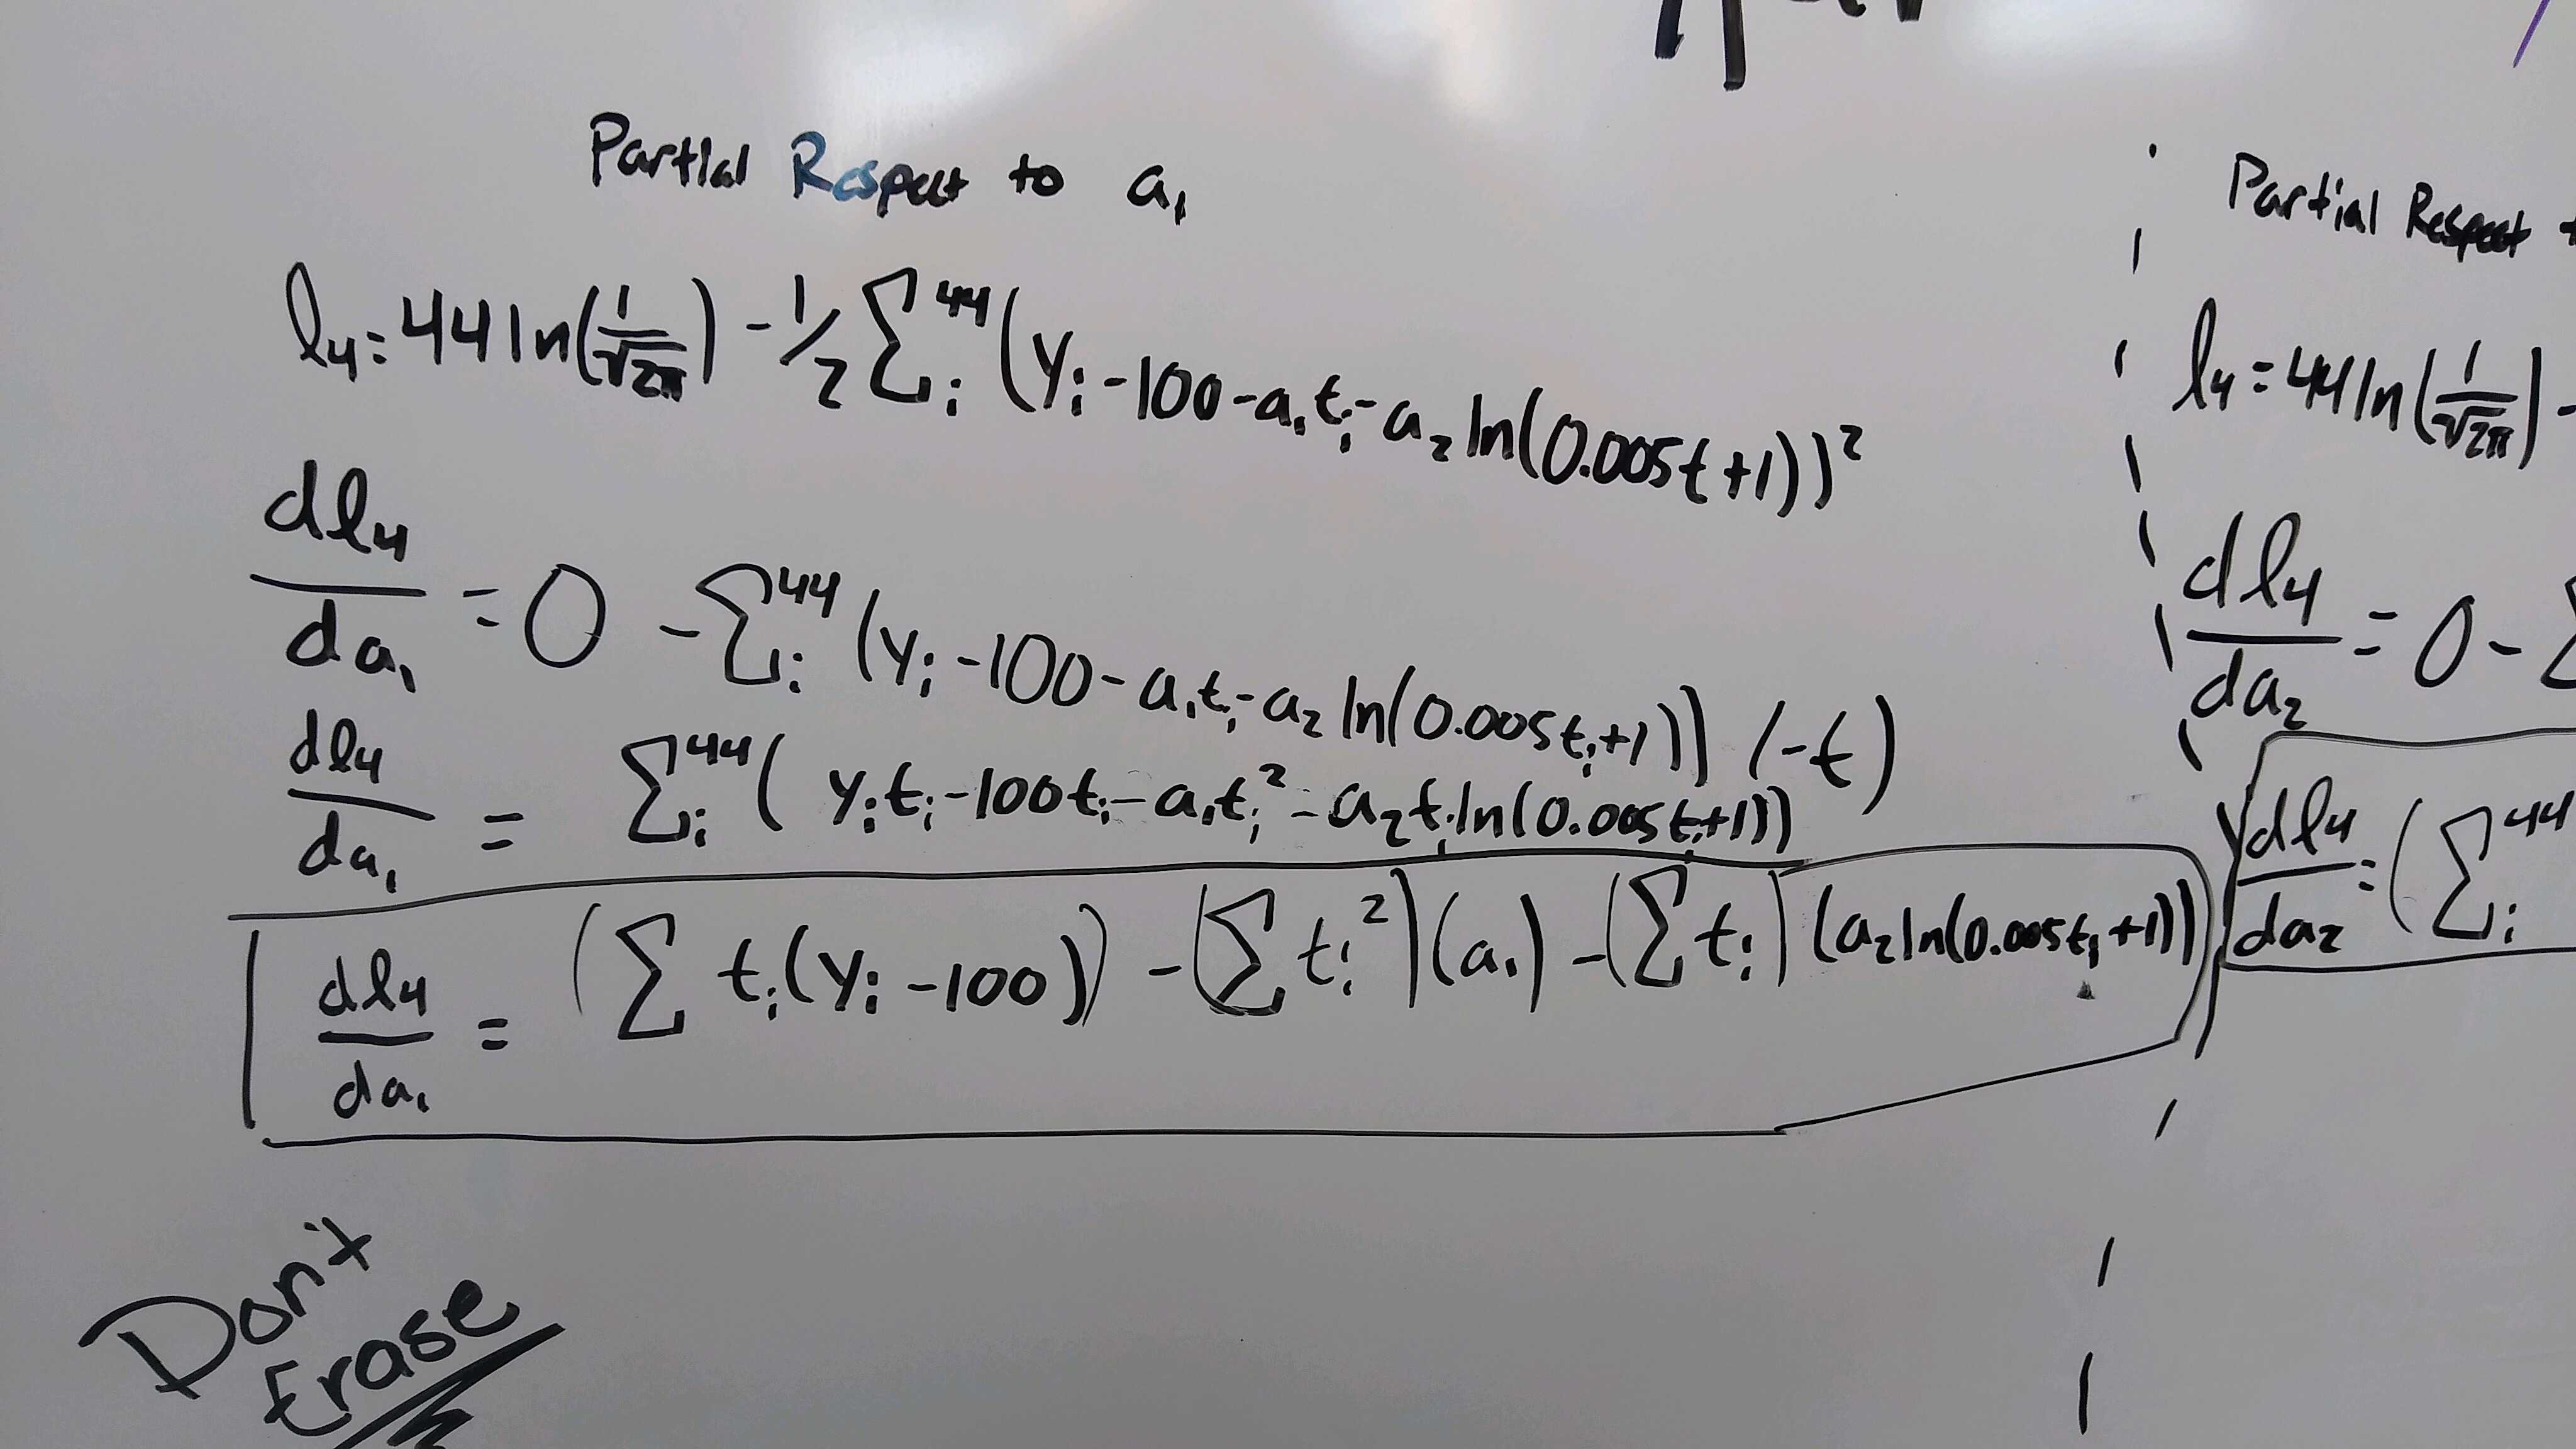 Partial Respect to a₁
l₄ = 44 ln(1/√2π) - 1/2 Σᵢ⁴⁴ (yᵢ - 100 - a₁tᵢ - a₂ ln(0.005t + 1))²
dl₄/da₁ = 0 - Σᵢ⁴⁴ (yᵢ - 100 - a₁tᵢ - a₂ ln(0.005tᵢ + 1)) (-t)
dl₄/da₁ = Σᵢ⁴⁴ ( yᵢtᵢ - 100tᵢ - a₁tᵢ² - a₂tᵢ ln(0.005tᵢ + 1))
dl₄/da₁ = (Σ tᵢ(yᵢ - 100)) - (Σ tᵢ²)(a₁) - (Σ tᵢ)(a₂ ln(0.005tᵢ + 1))
Don't
Erase
Partial Respect
l₄ = 44 ln(1/√2π) -
dl₄/da₂ = 0 - Σ
dl₄/da₂ = (Σᵢ⁴⁴